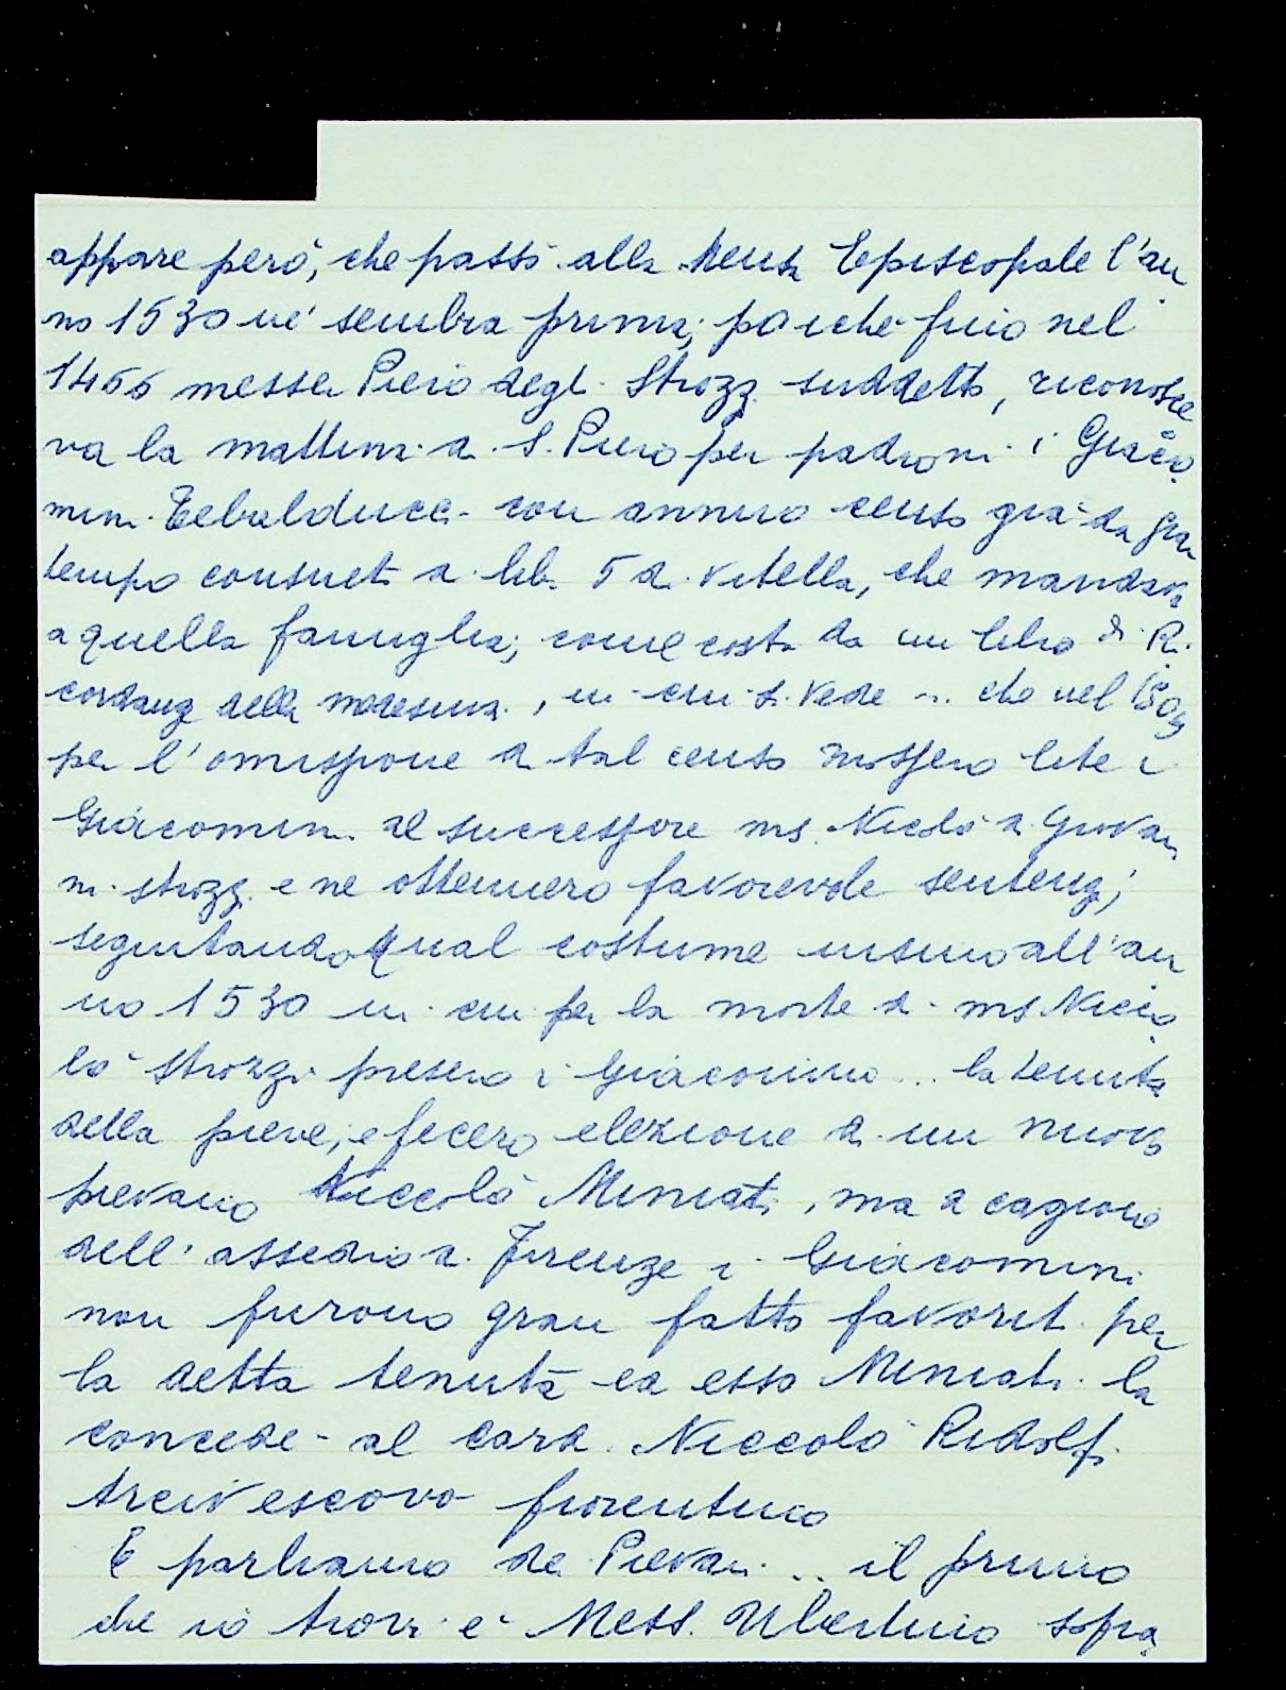 appare però, che passò alla Mensa Episcopale l'an
no 1530 né sembra prima; poiché fino nel
1466 messer Piero degl. Strozz. suddetto, riconosce
va la mattina di S. Piero per padroni i Giaco
mini Tebalducci con annuo censo già da gran
tempo consueti di lib. 5 di vitella, che mandava
a quella famiglia; come costa da un libro di Ri
cordanz della medesima, in cui si vede .. che nel
per l'omissione di tal censo mossero lite i
Giacomini al successore ms. Nicolò di Giovan
ni Strozz. e ne ottennero favorevole sentenz;
seguitando qual costume insino all'an
no 1530 in cui per la morte di ms Nicco
lò Strozzi presero i Giacomini .. la tenuta
della pieve, e fecero elezione di un nuovo
pievano Niccolò Miniati, ma a cagione
dell'assedio di Firenze i Giacomini
non furono gran fatto favoriti per
la detta tenuta ed esso Miniati la
concede al card. Niccolò Ridolfi
Arcivescovo fiorentino
E parliamo de Pievani .. il primo
che io trovi è Mess. Ubertino sopra